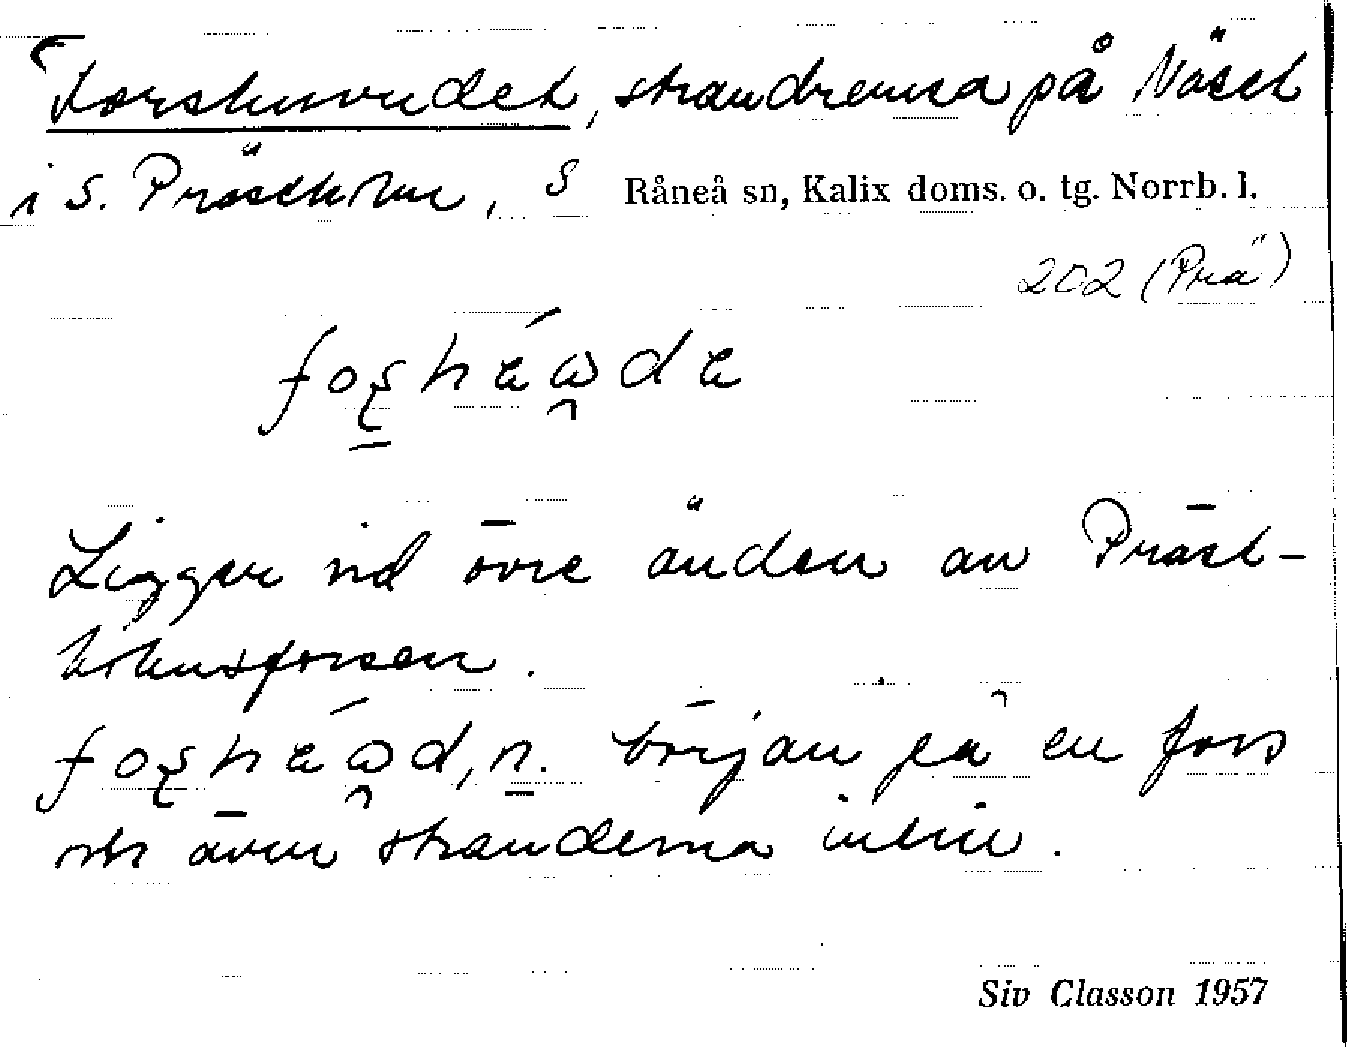 Forshuvudet, strandrenna på Näset
i S. Prästholm, S Råneå sn, Kalix doms. o. tg. Norrb. l.
202 (Prä)
Ligger vid övre änden av Präst-
holmsforsen.
början på en fors
och även stranderna intill.
Siv Classon 1957